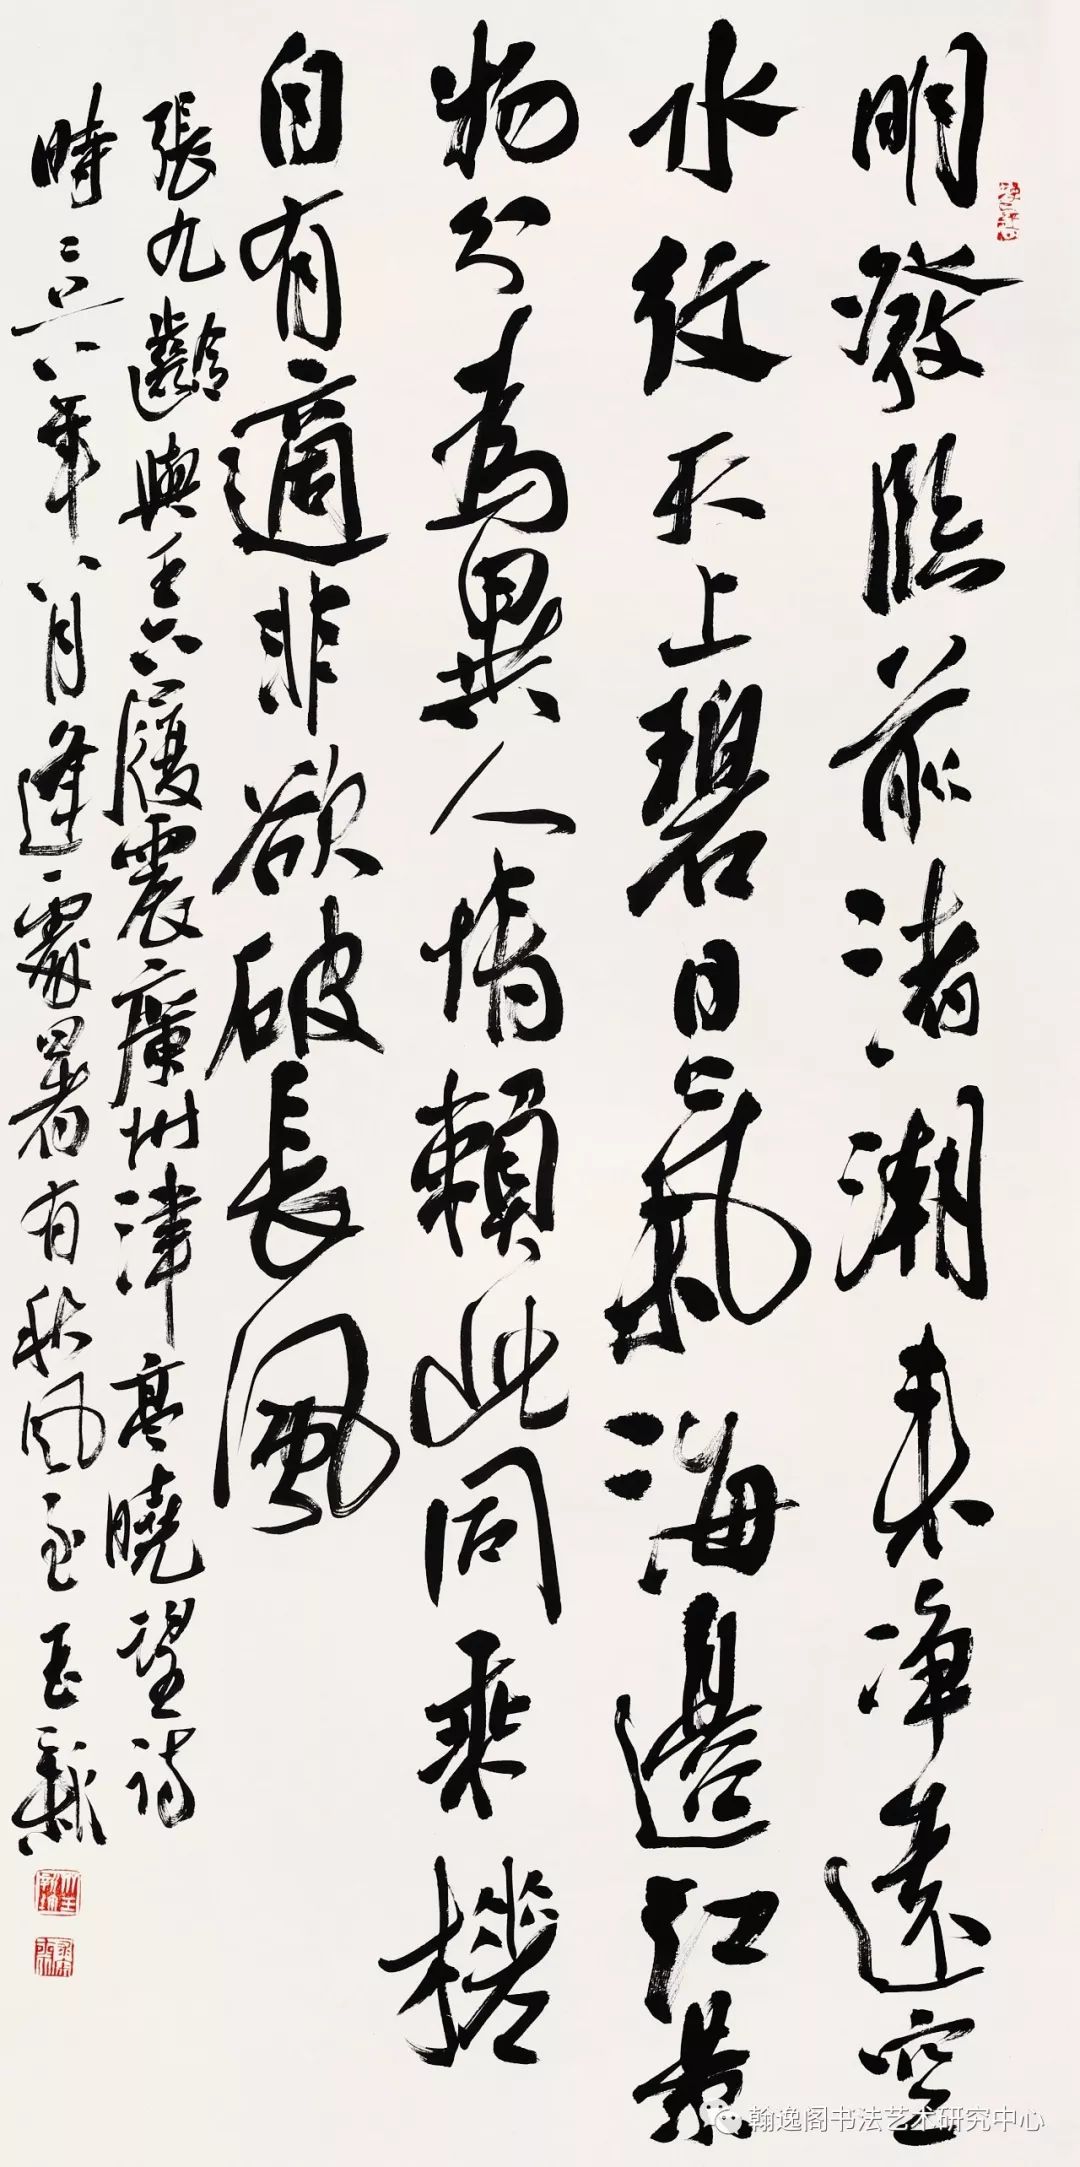 明發臨前渚潮来净遠空
水紋天上碧日氣海邊紅景
物分為異人情賴此同乘槎
自有適非欲破長風
張九齡與王六履震廣州津亭曉望詩
時二〇一八年八月逢處暑有秋風至玉
翰逸阁书法艺术研究中心